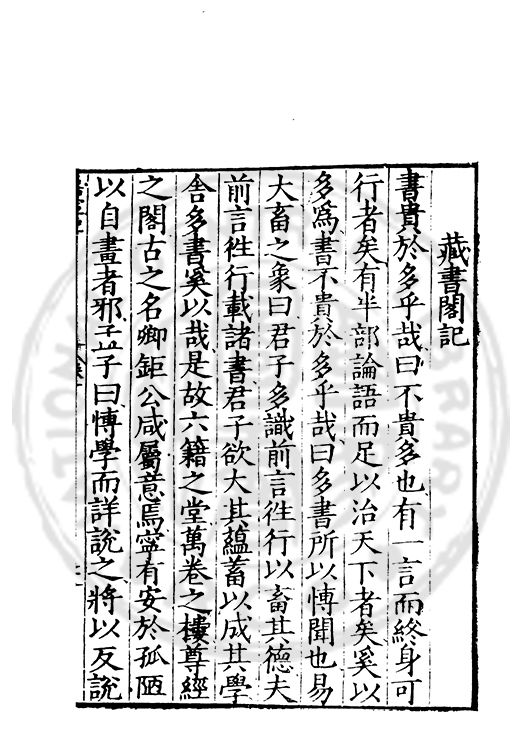 藏書閣記
書貴於多乎哉曰不貴多也有一言而終身可
行者矣有半部論語而足以治天下者矣奚以
多爲書不貴於多乎哉曰多書所以博聞也易
大畜之象曰君子多識前言徃行以畜其德夫
前言徃行載諸書君子欲大其蘊蓄以成其學
舎多書奚以哉是故六籍之堂萬卷之樓尊經
之閣古之名卿鉅公咸屬意焉寧有安於孤陋
以自畫者邪孟子曰博學而詳説之將以反説